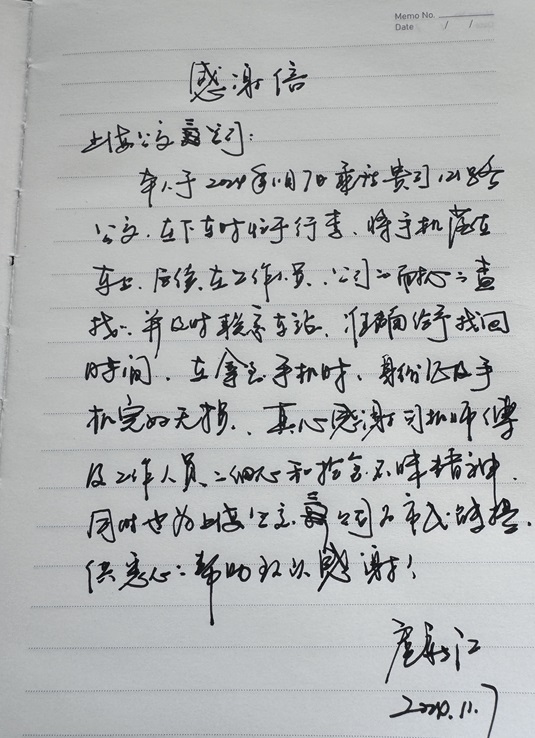 Memo No.
Date / /
感谢信
上海公交三公司:
本人于2024年11月7日乘访贵司121路
公交.在下车时忙于行李、将手机落在
车上.后续在工作人员、公司的耐心的查
找.并及时联系车站.准确给予找回
时间、在拿到手机时、身份证及手
机完好无损.真心感谢司机师傅
及工作人员的细心和拾金不昧精神.
同时也为上海公交三公司为市民提
供悉心的帮助致以感谢!
2024.11.7